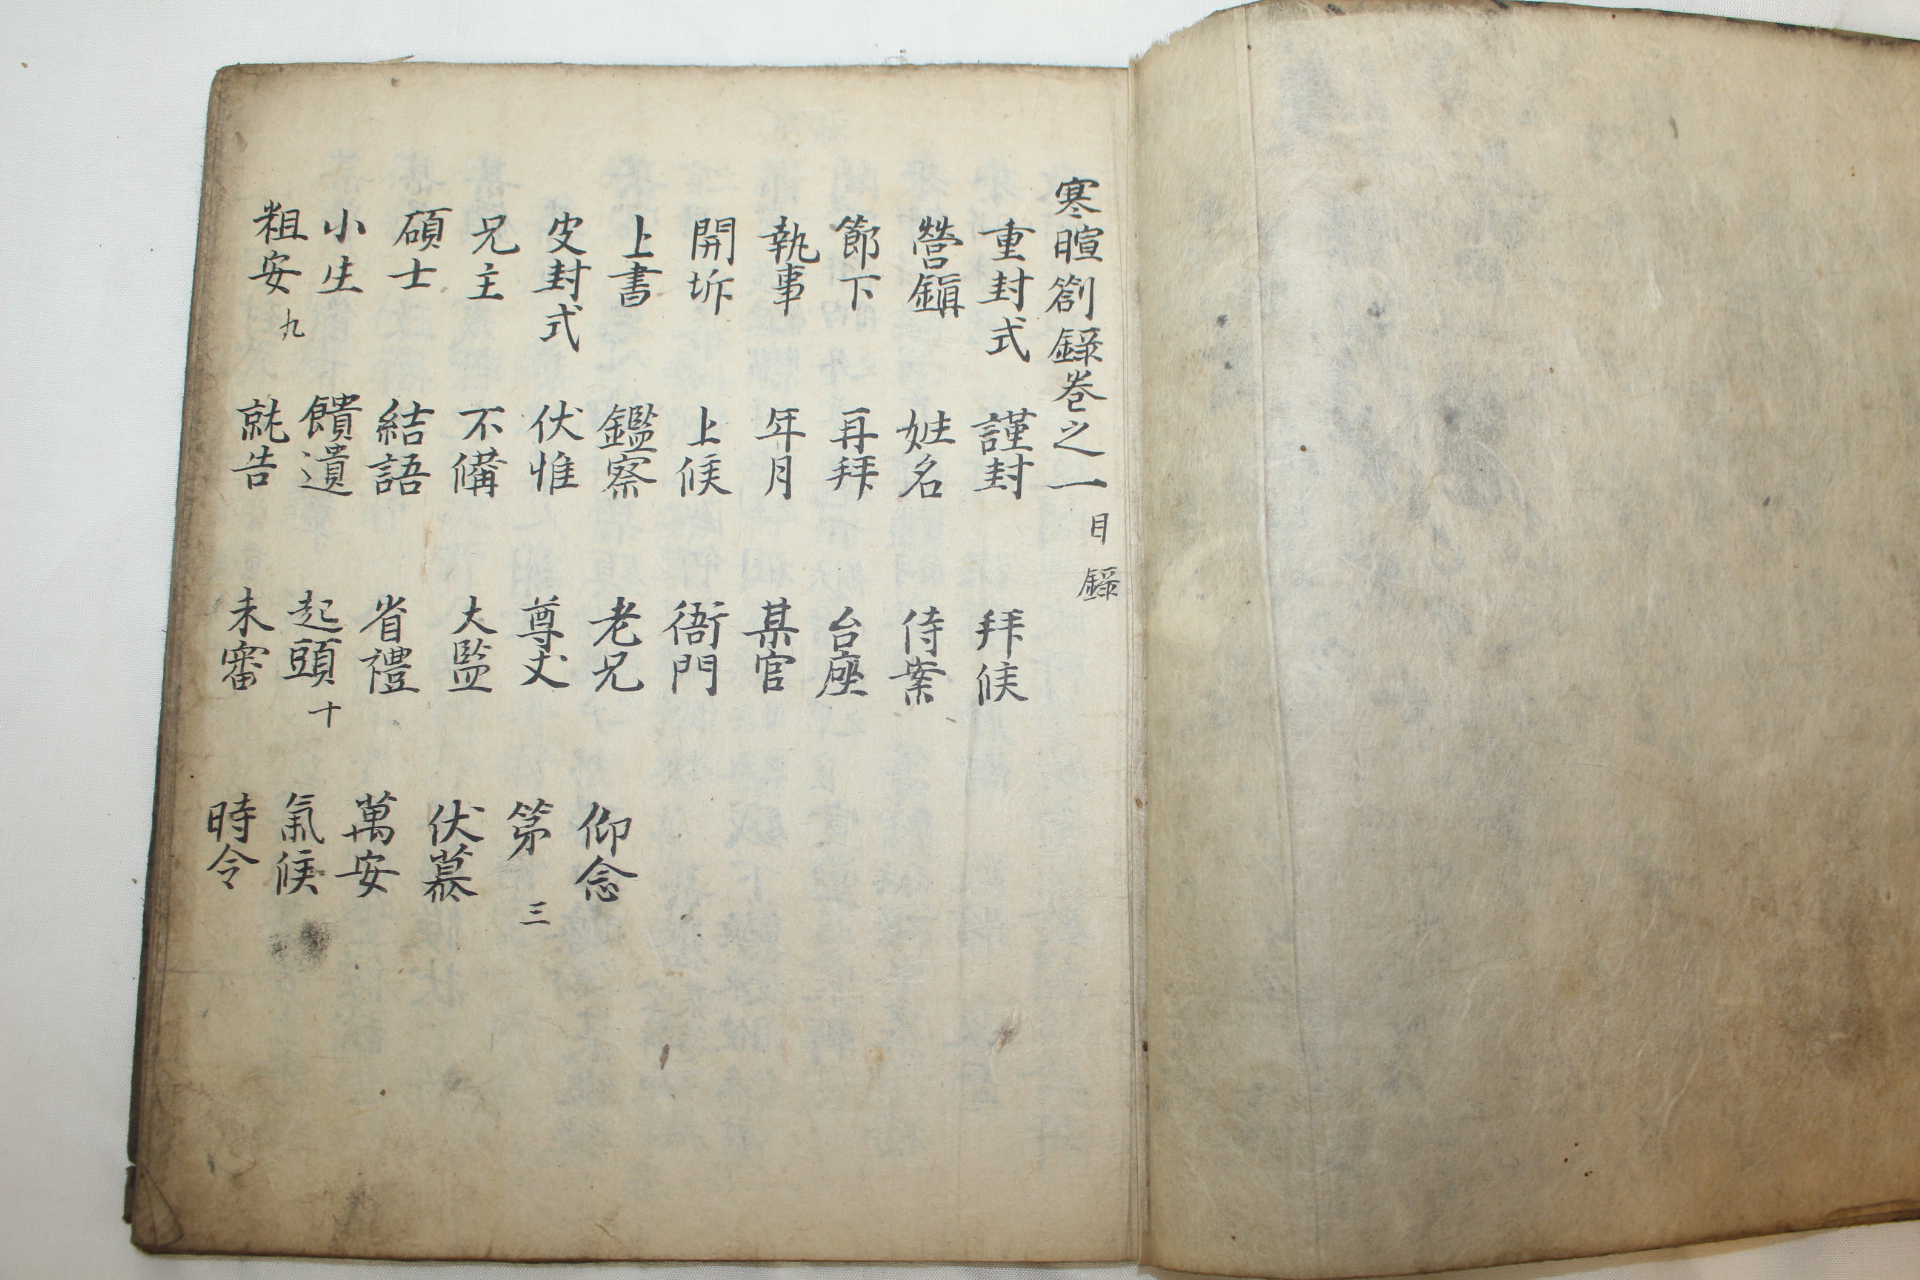 寒暄劄錄卷之一 目錄
重封式 謹封 拜候
營鎭 姓名 侍案
節下 再拜 台座
執事 年月 某官
開坼 上候 衙門
上書 鑑察 老兄 仰念
皮封式 伏惟 尊丈 第 三
兄主 不備 大監 伏慕
碩士 結語 省禮 萬安
小生 饋遺 起頭 十 氣候
粗安 九 就告 未審 時令